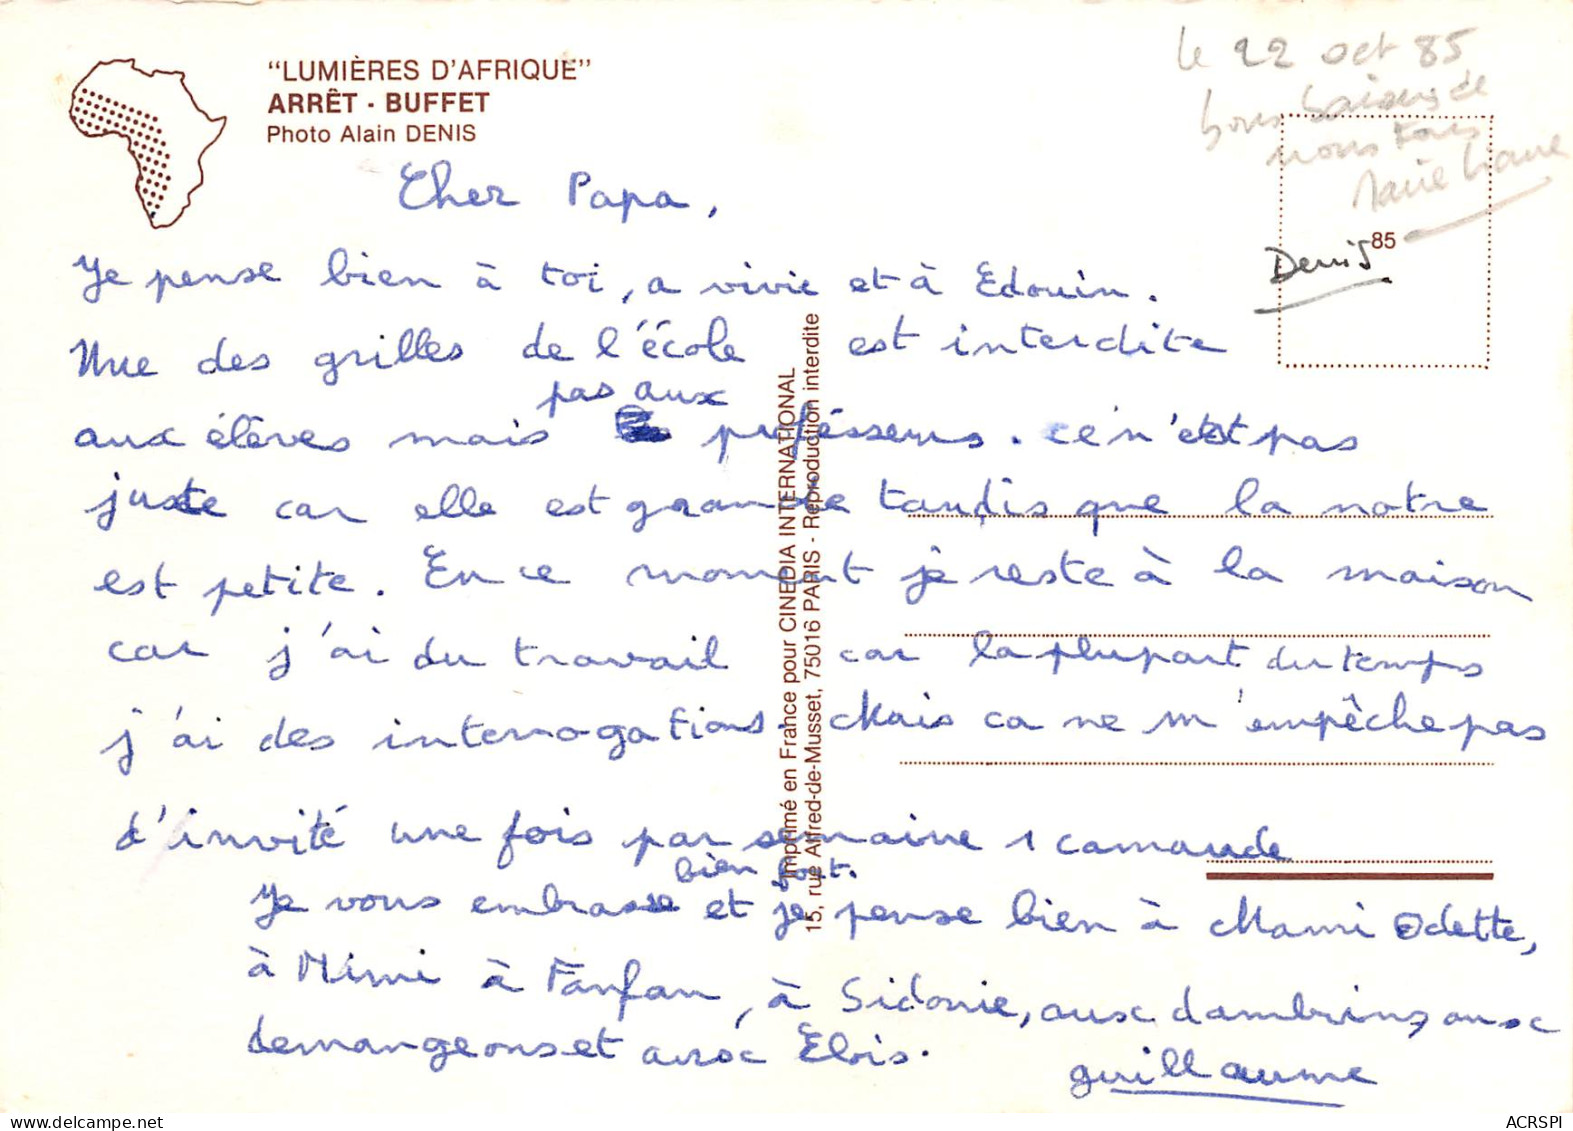 "LUMIÈRES D'AFRIQUE"
ARRÊT - BUFFET
Photo Alain DENIS
le 22 oct 85
bons baisers de
nous tous
Marie Liane
85
Denis
Cher Papa,
Je pense bien à toi, a vivie et à Edouin.
Nue des grilles de l'école est interdite
pas aux
aux élèves mais profésseurs. ce n'est pas
juste car elle est grande tandis que la notre
est petite. En ce moment je reste à la maison
car j'ai du travail car la plupart du temps
j'ai des interrogations. Mais ca ne m'empêche pas
d'invité une fois par semaine 1 camarade
bien fort.
Je vous embrasse et je pense bien à Mami Odette,
à Mimi à Fanfan, à Sidonie, aux dambrins, aux
demangeons et aux Elois.
guillaume
Imprimé en France pour CINEDIA INTERNATIONAL
15, rue Alfred-de-Musset, 75016 PARIS - Reproduction interdite
ACRSPI